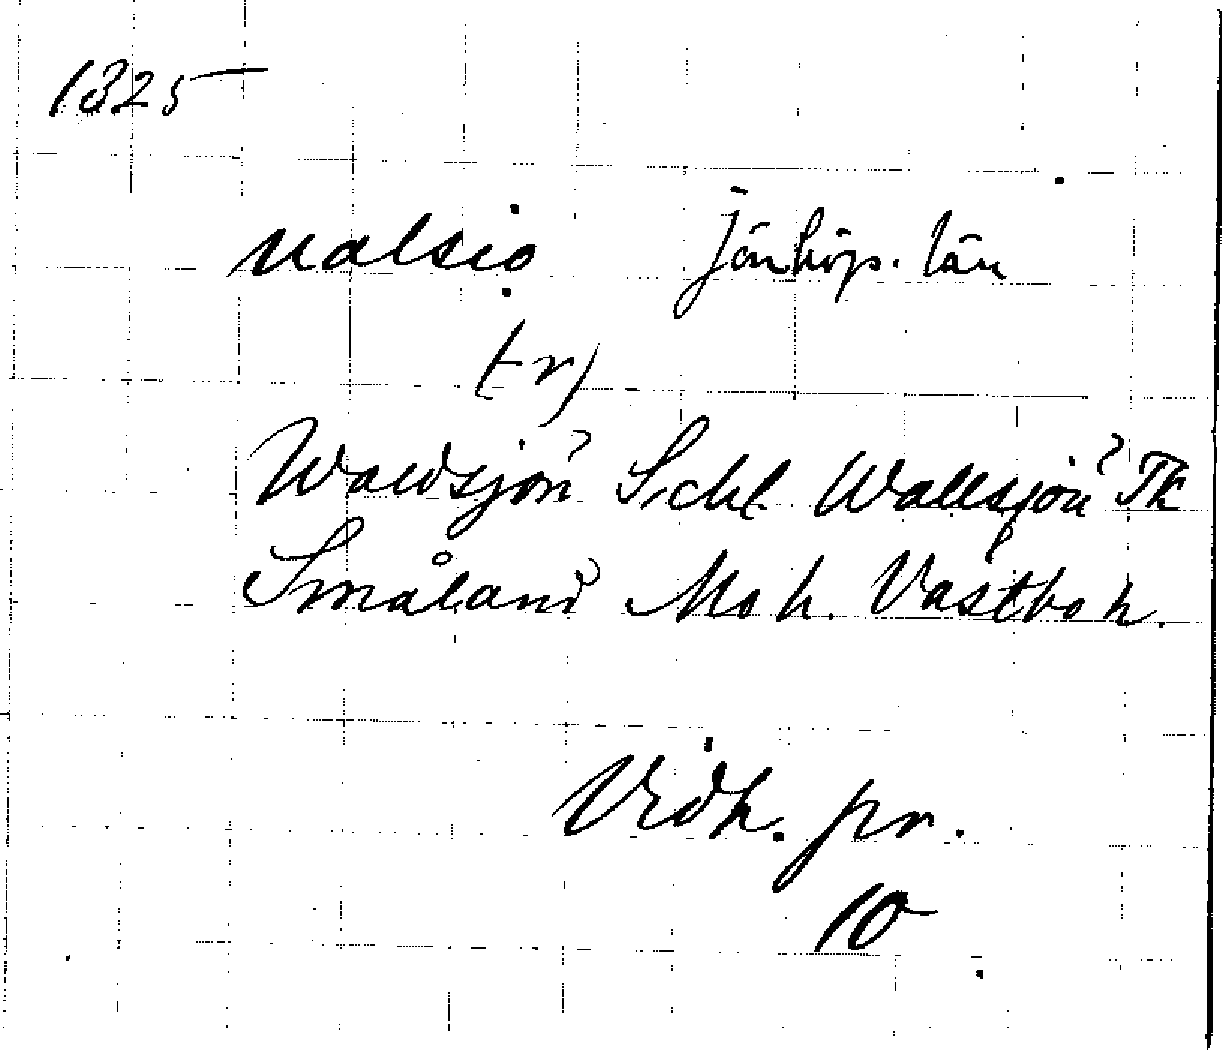 1325
ualsio Jönköp. län
(-r)
Waldsjön Schl. Wallsjön Tk
Småland Mo h. Västbo h.
Vidh. pr.
10